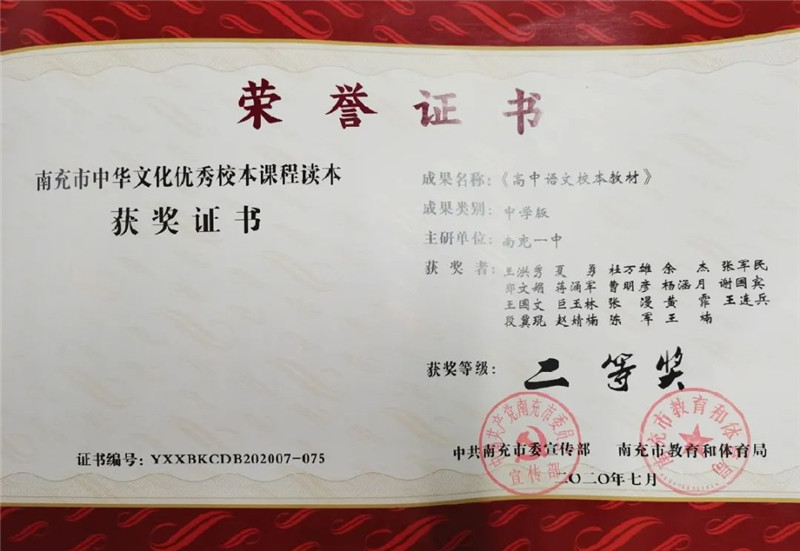 荣誉证书
南充市中华文化优秀校本课程读本
获奖证书
证书编号：YXXBKCDB202007-075
成果名称：《高中语文校本教材》
成果类别：中学版
主研单位：南充一中
获奖者：王洪秀 夏勇 杜万雄 余杰 张军民
郑文娟 蒋涌军 曹明彦 杨涵月 谢国宾
王国文 巨玉林 张漫 黄霏 王连兵
段冀琨 赵婧楠 陈军 王楠
获奖等级：二等奖
中共南充市委宣传部 南充市教育和体育局
二〇二〇年七月
中国共产党南充市委员会
宣传部
南充市教育和体育局